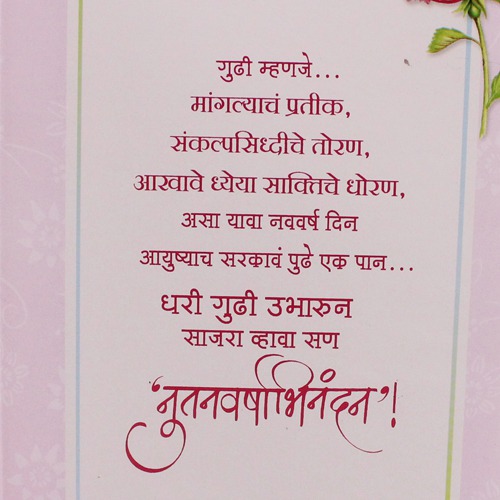 गुढी म्हणजे...
मांगल्याचं प्रतीक,
संकल्पसिध्दीचे तोरण,
आखावे ध्येया साक्तिचे धोरण,
असा यावा नववर्ष दिन
आयुष्याच सरकावं पुढे एक पान...
धरी गुढी उभारुन
साजरा व्हावा सण
‘नुतनवर्षाभिनंदन’!